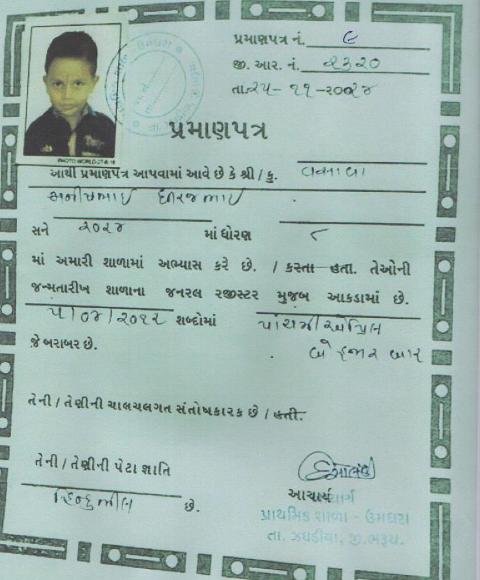 પ્રમાણપત્ર નં. ૯
જી. આર. નં. ૨૩૨૦
તા. ૨૫-૧૧-૨૦૨૪
પ્રમાણપત્ર
PHOTO WORLD-27-6-18
આથી પ્રમાણપત્ર આપવામાં આવે છે કે શ્રી / કુ. વસાવા
ધીરજભાઈ
સને ૨૦૨૪ માં ધોરણ ૮
માં અમારી શાળામાં અભ્યાસ કરે છે. / કરતા હતા. તેઓની
જન્મતારીખ શાળાના જનરલ રજીસ્ટર મુજબ આકડામાં છે.
૫/૦૪/૨૦૧૨ શબ્દોમાં પાંચમી એપ્રિલ
જે બરાબર છે. બે હજાર બાર
તેની / તેણીની ચાલચલગત સંતોષકારક છે / હતી.
તેની / તેણીની પેટા જ્ઞાતિ
આચાર્ય
હિન્દુ ભીલ છે.
પ્રાથમિક શાળા - ઉમધરા
તા. ઝઘડીયા, જી. ભરૂચ.